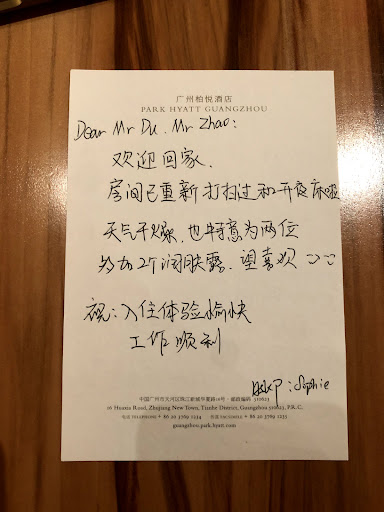 广州柏悦酒店
PARK HYATT GUANGZHOU
Dear Mr Du. Mr Zhao:
欢迎回家、
房间已重新打扫过和开夜床啦
天气干燥,也特意为两位
添加2个润肤露,望喜欢
祝:入住体验愉快
工作顺利
:Sophie
中国广州市天河区珠江新城华夏路16号·邮政编码 510623
16 Huaxia Road, Zhujiang New Town, Tianhe District, Guangzhou 510623, P.R.C.
电话 TELEPHONE + 86 20 3769 1234 传真 FACSIMILE + 86 20 3769 1233
guangzhou.park.hyatt.com